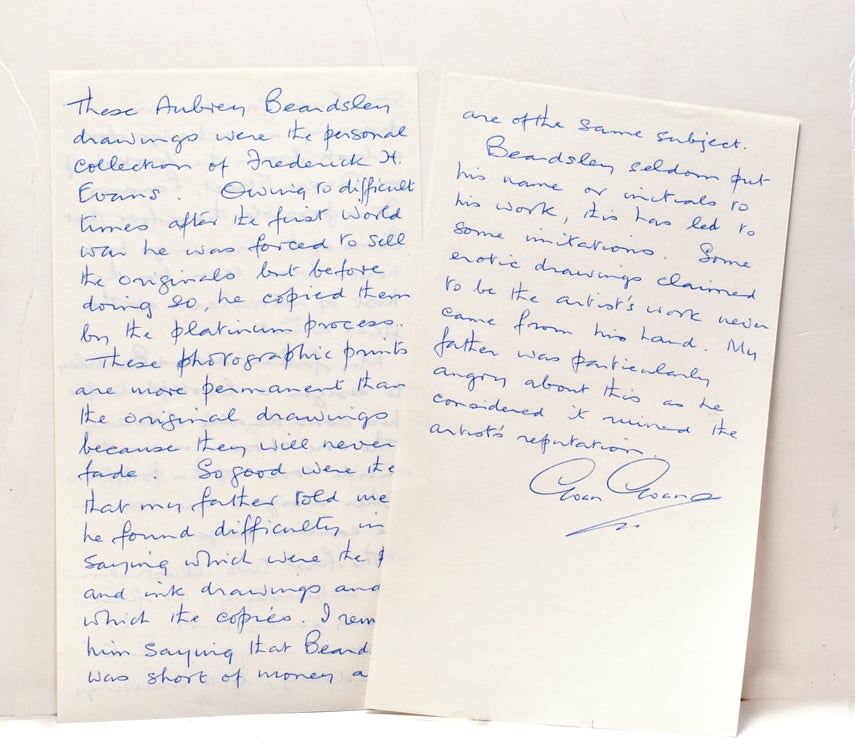 These Aubrey Beardsley
drawings were the personal
collection of Frederick H.
Evans. Owing to difficult
times after the first world
war he was forced to sell
the originals but before
doing so, he copied them
by the platinum process.
These photographic prints
are more permanent than
the original drawings
because they will never
fade. So good were the
that my father told me
he found difficulty in
saying which were the
and ink drawings and
which the copies. I rem
him saying that Beard
was short of money a
are of the same subject.
Beardsley seldom put
his name or initials to
his work, this has led to
some imitations. Some
erotic drawings claimed
to be the artist's work never
came from his hand. My
father was particularly
angry about this as he
considered it ruined the
artist's reputation.
Evans